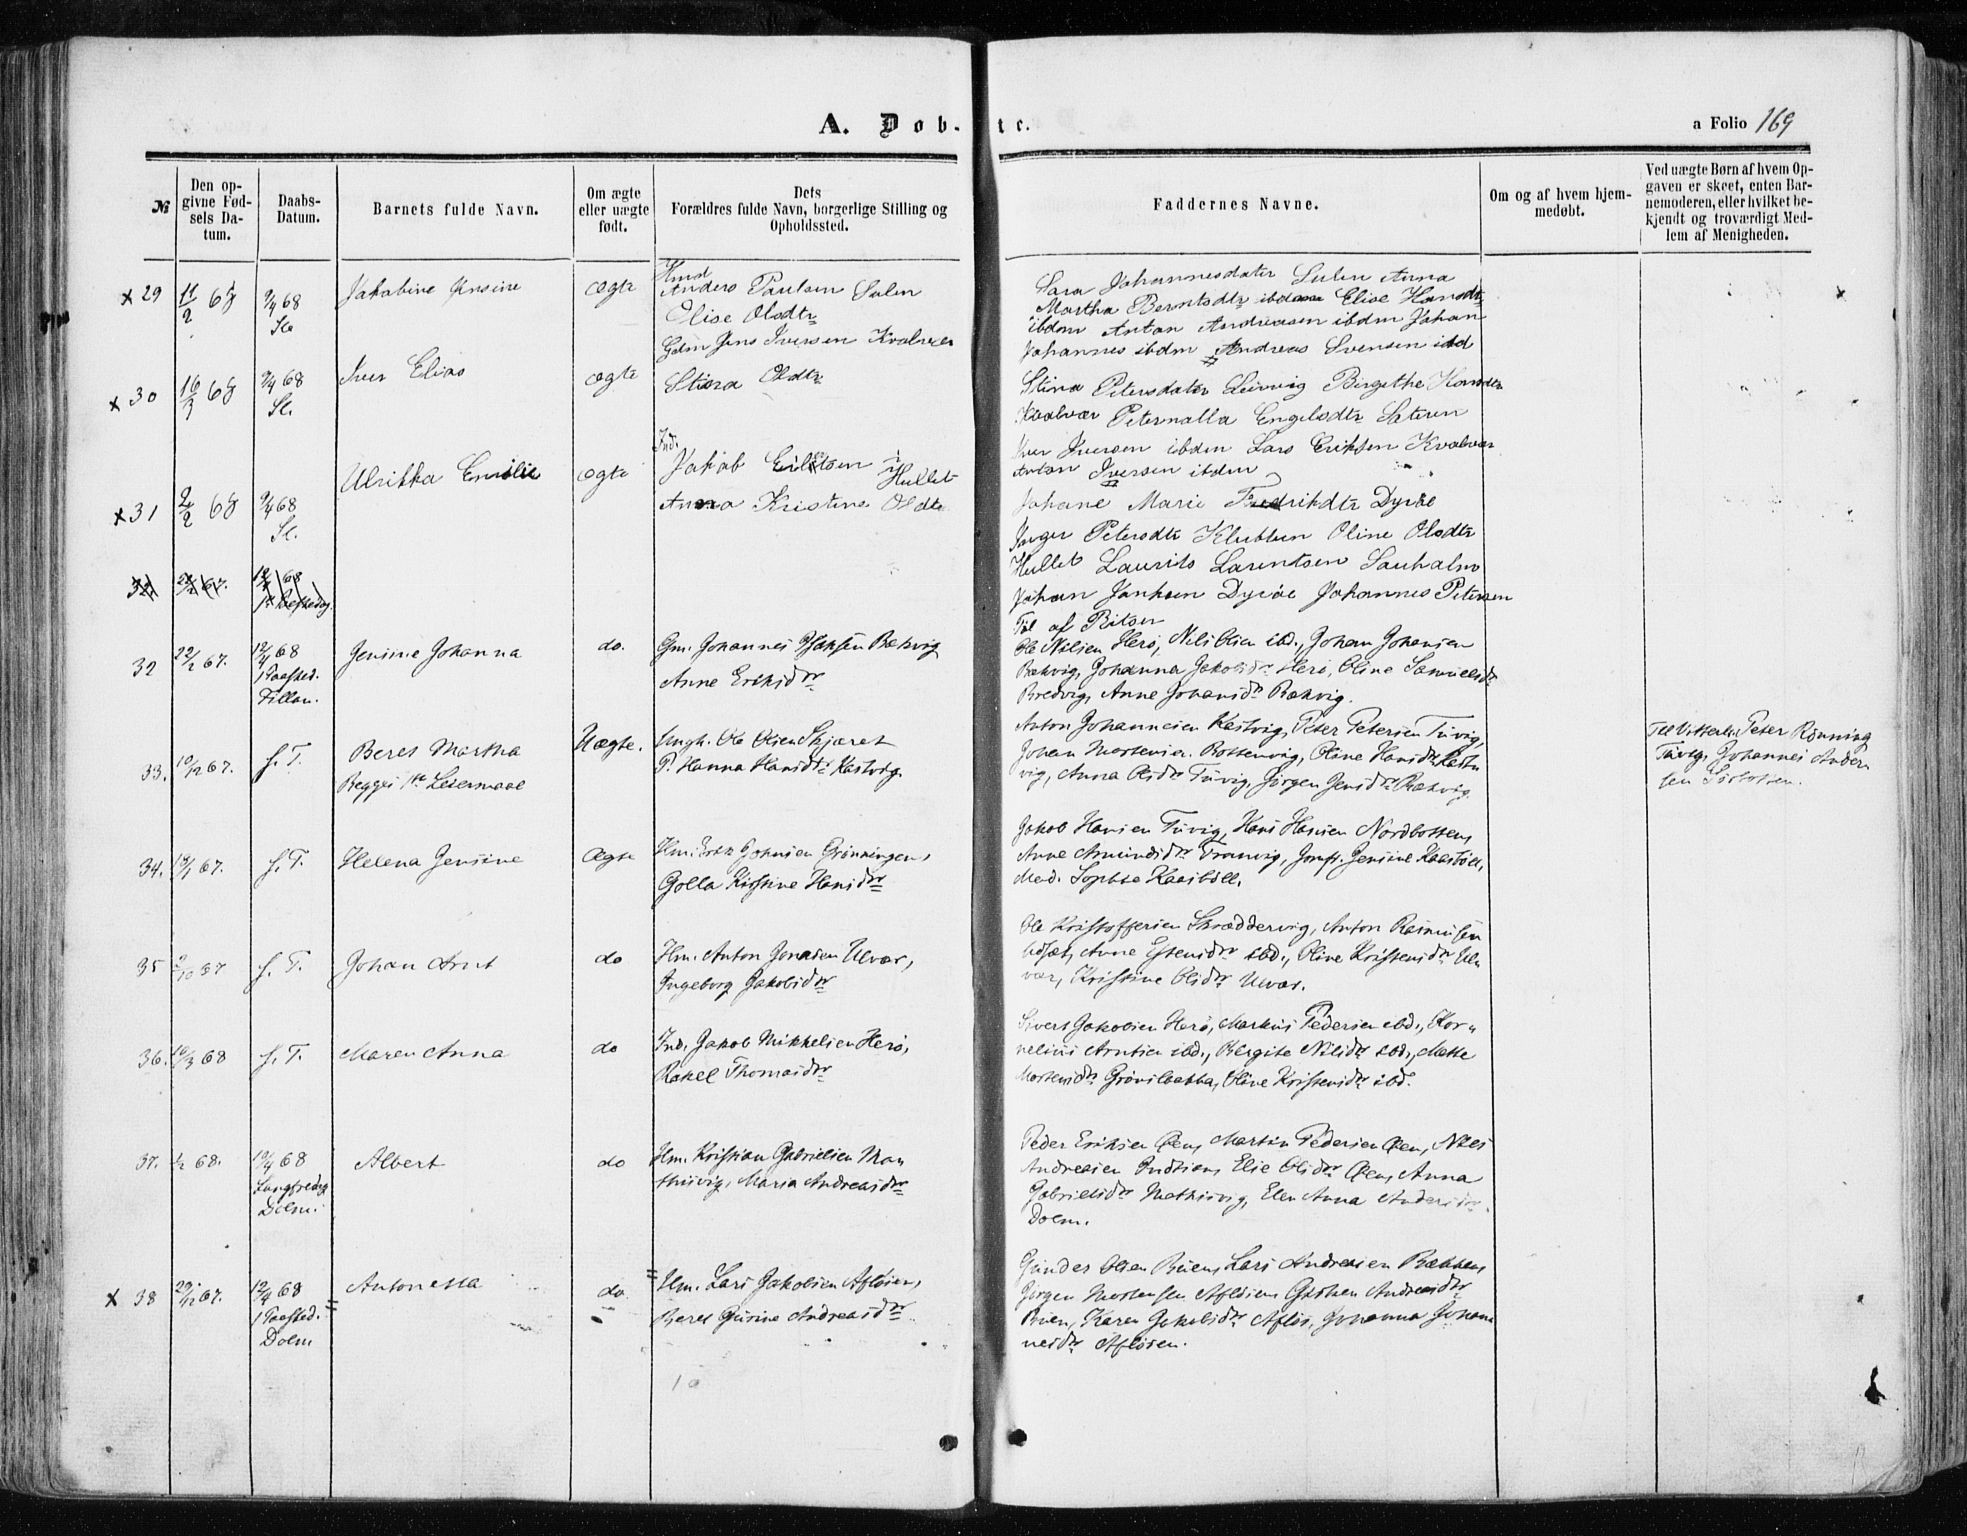 A. Døb- te.
a Folio 169
№
Den opgivne Fødsels Datum.
Daabs-Datum.
Barnets fulde Navn.
Om ægte eller uægte født.
Dets Forældres fulde Navn, borgerlige Stilling og Opholdssted.
Faddernes Navne.
Om og af hvem hjemmedøbt.
Ved uægte Børn af hvem Opgaven er skeet, enten Barnemoderen, eller hvilket bekjendt og troværdigt Medlem af Menigheden.
x 29 11/2 68 9/4 68 Sl. Jakobine Jensine ægte
Hmd Anders Paulsen Sulen
Elise Olsdtr
Sara Johannesdater Sulen Anna
Martha Berntsdtr ibdm Elise Hansdtr
ibdm Anton Andreasen ibdm Johan
Johannes ibdm Andreas Svensen ibd
x 30 16/3 68 9/4 68 Sl. Iver Elias ægte
Gdm Jens Iversen Kvalvær
Stina Olsdtr
Stina Petersdater Birgithe Hansdtr
Kvalvær Peternella Engelsdtr Sæteren
Iver Iversen ibdm Lars Eriksen Kvalvær
Anton Iversen ibdm
x 31 2/2 68 9/4 68 Sl. Ulrikka Emilie ægte
Ind. Jakob i Hullet
Anna Kristine Olsdtr
Johane Marie Fredrikdtr Dyrøe
Inger Petersdtr Klubben Oline Olsdtr
Hullet Laurits Larentsen Sauholm
Johan Janhsen Dyrøe Johannes Petersen
32 22/12 67. 12/4 68 1ste Paaskedag.
32 22/12 67. 12/4 68 1 Paasked. Fillan. Jensine Johanna do.
Gm. Johannes Isaksen Bækvig
Anne Eriksdtr
Ole Nilsen Herø, Nils Olsen ibd., Johan Johansen
Bækvig, Johanna Jakobsdtr Herø, Oline Samuelsdtr
Bredvig, Anne Johansdtr Bækvig.
33. 10/12 67. s. T. Beret Martha Uægte.
Begges 1ste Leiermaal
Ungk. Ole Olsen Skjæret
P. Hanna Hansdtr Kastvig.
Anton Johannesen Kastvig, Peter Petersen Tuvig,
Johan Mortensen Bottenvig, Oline Hansdtr Kast-
vig, Anna Olsdtr Tuvig, Jørgen Jensdtr Bækvig.
Peter Rønning
Tuvig, Johannes Ander-
sen
34. 67. s. T. Helena Jensine Ægte
Hm. Erik Johnsen Grønningen,
Golla Kirstine Hansdtr
Jakob Hansen Tuvig, Hans Hansen Nordbotten,
Anne Amundsdtr Tranvig, Jomf. Jensine Kaasbøll,
Mad. Sophie Kaasbøll.
35 9/10 67 s. T. Johan Arnt do
Hm. Anton Jensen Ulvær,
Ingeborg Jakobsdtr
Ole Kristoffersen Skræddervig, Anton Rasmussen
Anne Estensdtr ibd., Oline Kristensdtr Ul-
vær, Kristine Olsdtr Ulvær.
36. 16/3 68 s. T. Maren Anna do
Ind. Jakob Mikkelsen Herø,
Rakel Thomasdtr
Sivert Jakobsen Herø, Markus Pedersen ibd., Kor-
nelius Arntsen ibd., Bergite Nilsdtr ibd., Mette
Mortensdtr Grønsbakka, Oline Kristensdtr ibd.
37. 1/2 68. 10/4 68 Langfredag Dolm. Albert do
Hm. Kristian Gabrielsen Ma-
thisvig, Maria Andreasdtr
Peder Eriksen Øen, Martin Pedersen Øen, Nils
Andreasen Indsien, Elie Olsdtr Øen, Anna
Gabrielsdtr Mathisvig, Elen Anna Andersdtr
Dolm.
x 38 29/12 67. 12/4 68 1 Paasked. Dolm Antonetta do
Hm. Lars Jakobsen Afløsen,
Beret Gurine Andreasdtr
Gunder Olsen Buen, Lars Andreasen Bakken,
Jørgen Mortensen Afløsen, Gjertien Andreasdtr
Buen, Karen Jakobsdtr Afløs, Johanna Johan-
nesdtr Afløsen.
10